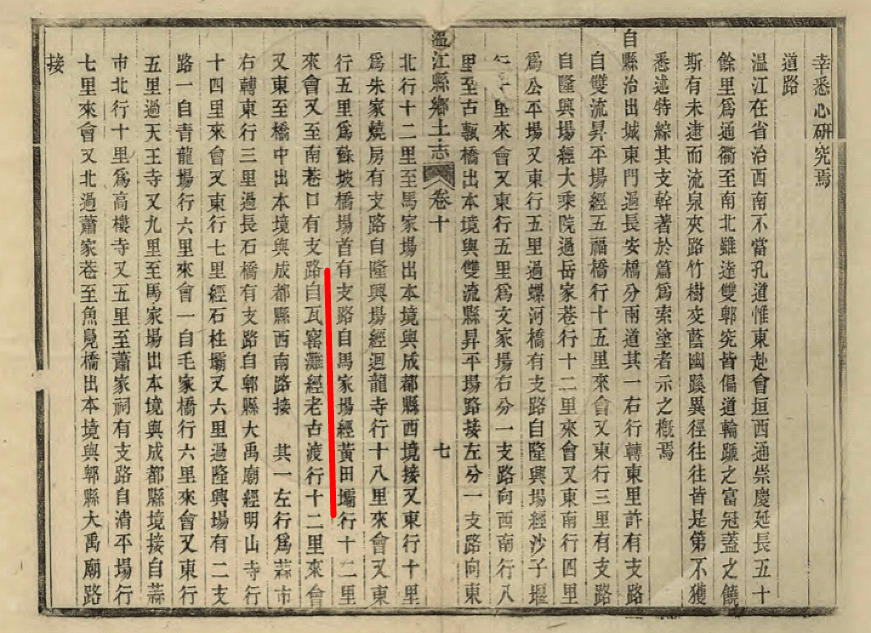 幸悉心研究焉
道路
溫江在省治西南不當孔道惟東赴會垣西通崇慶延長五十
餘里爲通衢至南北雖達雙郫究皆偪道輪蹏之富冠蓋之饒
斯有未逮而流泉夾路竹樹交蔭幽蹊異徑往往皆是第不獲
悉述特綜其支幹著於篇爲索塗者示之槪焉
自縣治出城東門過長安橋分兩道其一右行轉東里許有支路
自雙流昇平場經五福橋行十五里來會又東行三里有支路
自隆興場經大乘院過岳家巷行十二里來會又東南行四里
爲公平場又東行五里過螺河橋有支路自隆興場經沙子堰
里來會又東行五里爲文家場右分一支路向西南行八
里至古瓢橋出本境與雙流縣昇平場路接左分一支路向東
溫江縣鄉土志 卷十 七
北行十二里至馬家場出本境與成都縣西境接又東行十里
爲朱家燒房有支路自隆興場經迴龍寺行十八里來會又東
行五里爲蘇坡橋場首有支路自馬家場經黃田壩行十二里
來會又至南巷口有支路自瓦窰灘經老古渡行十二里來會
又東至橋中出本境與成都縣西南路接 其一左行爲蒜市
右轉東行三里過長石橋有支路自郫縣大禹廟經明山寺行
十四里來會又東行七里經石柱壩又六里過隆興場有二支
路一自青龍場行六里來會一自毛家橋行六里來會又東行
五里過天王寺又九里至馬家場出本境與成都縣境接自蒜
市北行十里爲高樓寺又五里至蕭家祠有支路自清平場行
七里來會又北過蕭家巷至魚鳧橋出本境與郫縣大禹廟路
接